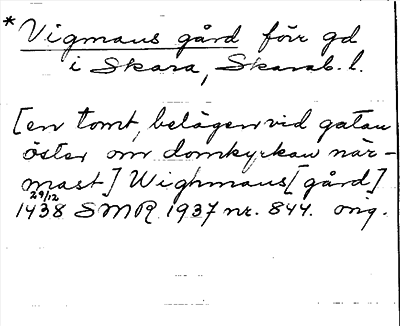 * Vigmans gård förr gd
i Skara, Skarab. l.
[en tomt, belägen vid gatan
öster om domkyrkan när-
mast] Wighmans [gård]
29/12
1438 SMR 1937 nr. 844. orig.